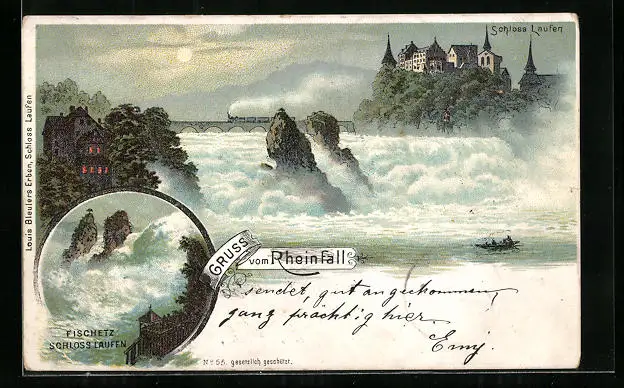 Schloss Laufen
Louis Bleulers Erben, Schloss Laufen
GRUSS
vom Rheinfall
FISCHETZ
SCHLOSS LAUFEN
sendet, gut angekommen,
ganz prächtig hier.
Emy.
No 55. gesetzlich geschützt.